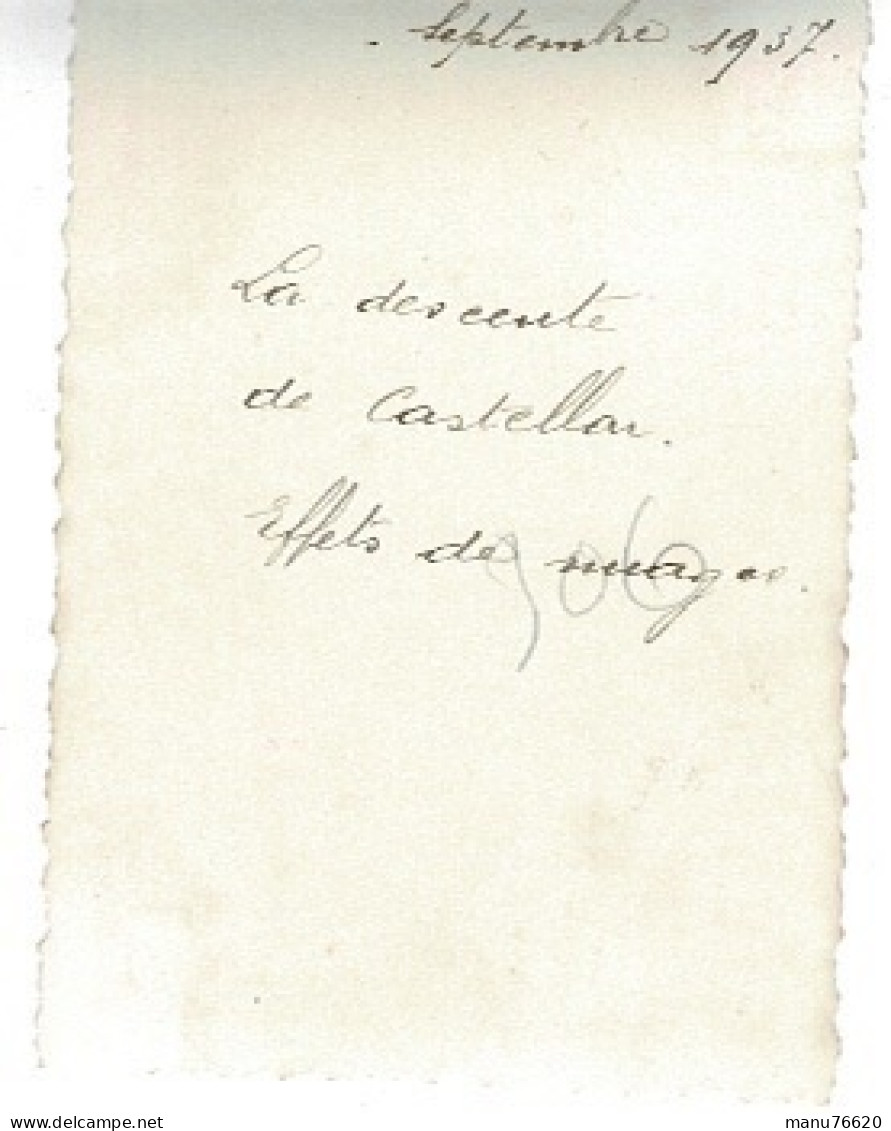 . Septembre 1937.
La descente
de Castellar.
Effets de nuages.
306
delcampe.net
manu76620